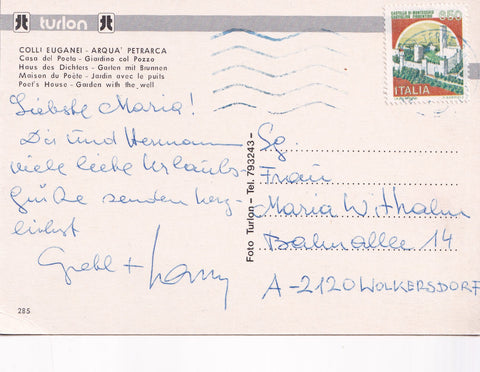 turlon
COLLI EUGANEI - ARQUA' PETRARCA
Casa del Poeta - Giardino col Pozzo
Haus des Dichters - Garten mit Brunnen
Maison du Poète - Jardin avec le puits
Poet's House - Garden with the well
CASTELLO DI MONTECCHIO
CASTIGLION FIORENTINO
850
ITALIA
Liebste Maria!
Dir und Hermann
viele liebe Urlaubs-
grüße senden herz-
lichst
Foto Turlon - Tel. 793243 -
Sg.
Frau
Maria Withalm
Bahnallee 14
A-2120 WOLKERSDORF
285